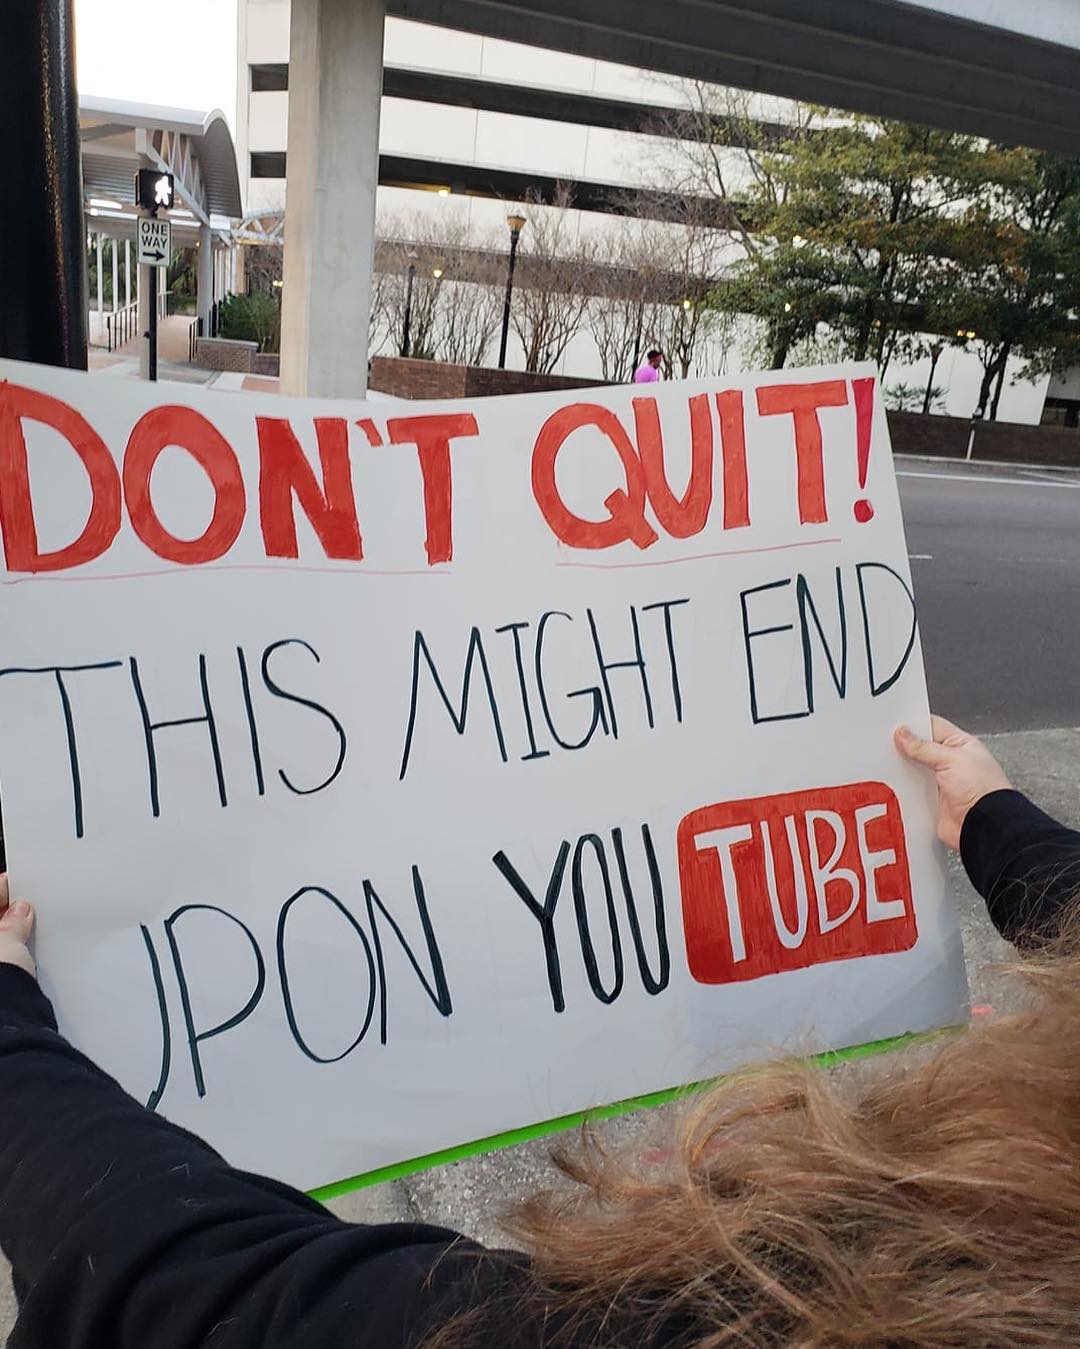 ONE
WAY
DON'T QUIT!
THIS MIGHT END
JPON YOUTUBE